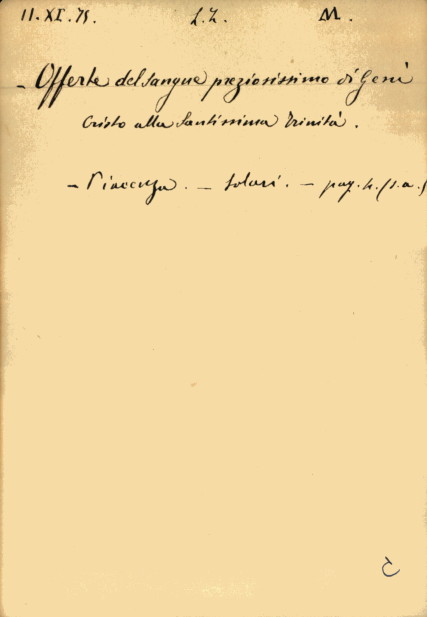 11. XI. 75. L. Z. M.
- Offerte del sangue preziosissimo di Gesù
Cristo alla Santissima Trinità.
- Piacenza. - Solari. - pag. 4. (s. a.)
C